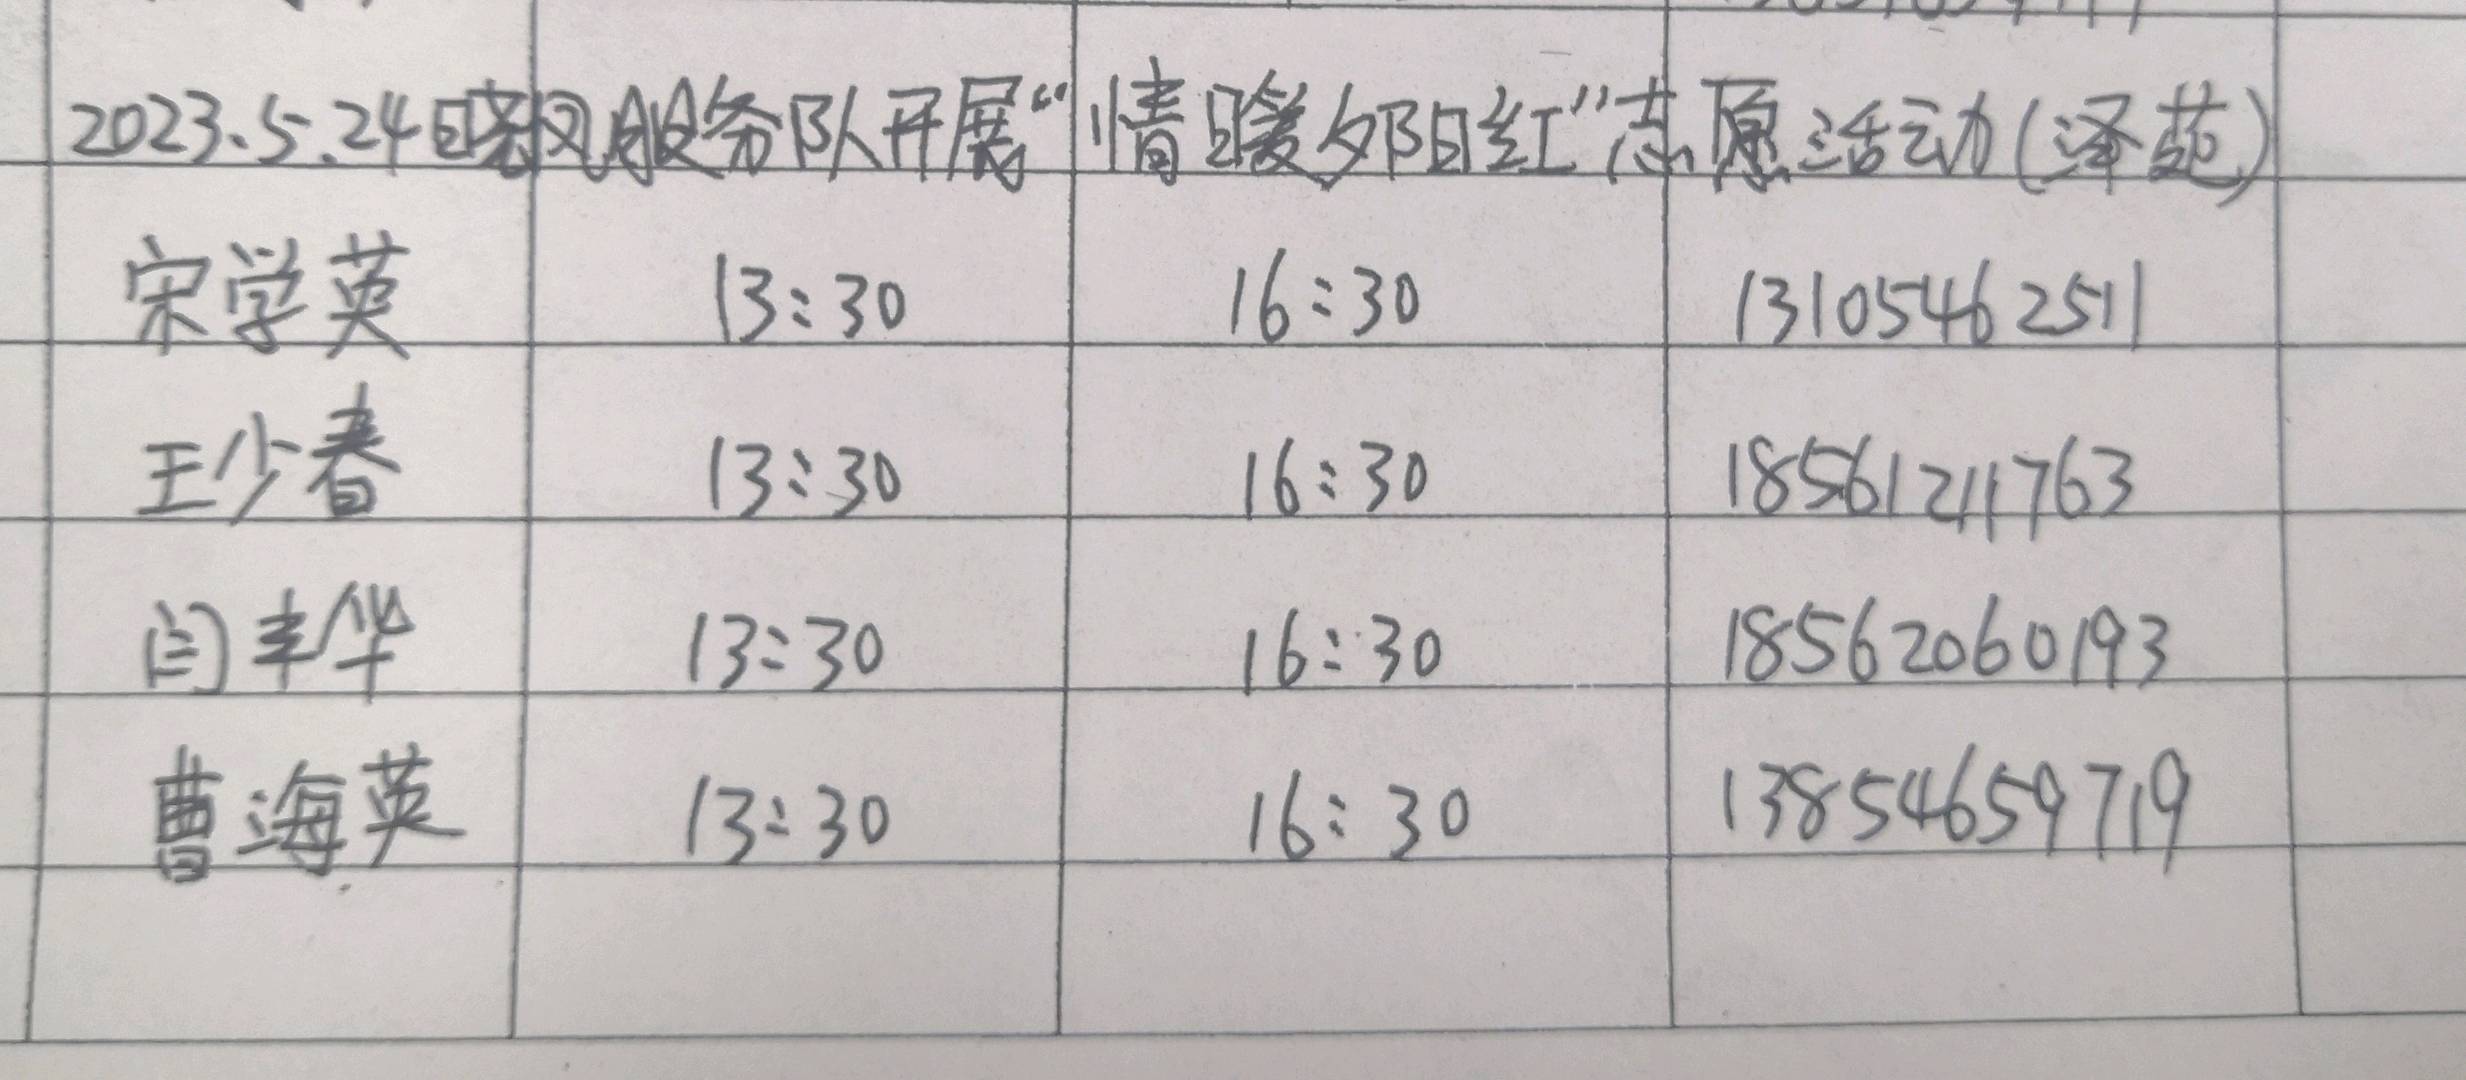 2023.5.24晓风服务队开展“情暖夕阳红”志愿活动(泽苑)
宋学英 13:30 16:30 13105462511
王少春 13:30 16:30 18561211763
闫丰华 13:30 16:30 18562060193
曹海英 13:30 16:30 13854659719